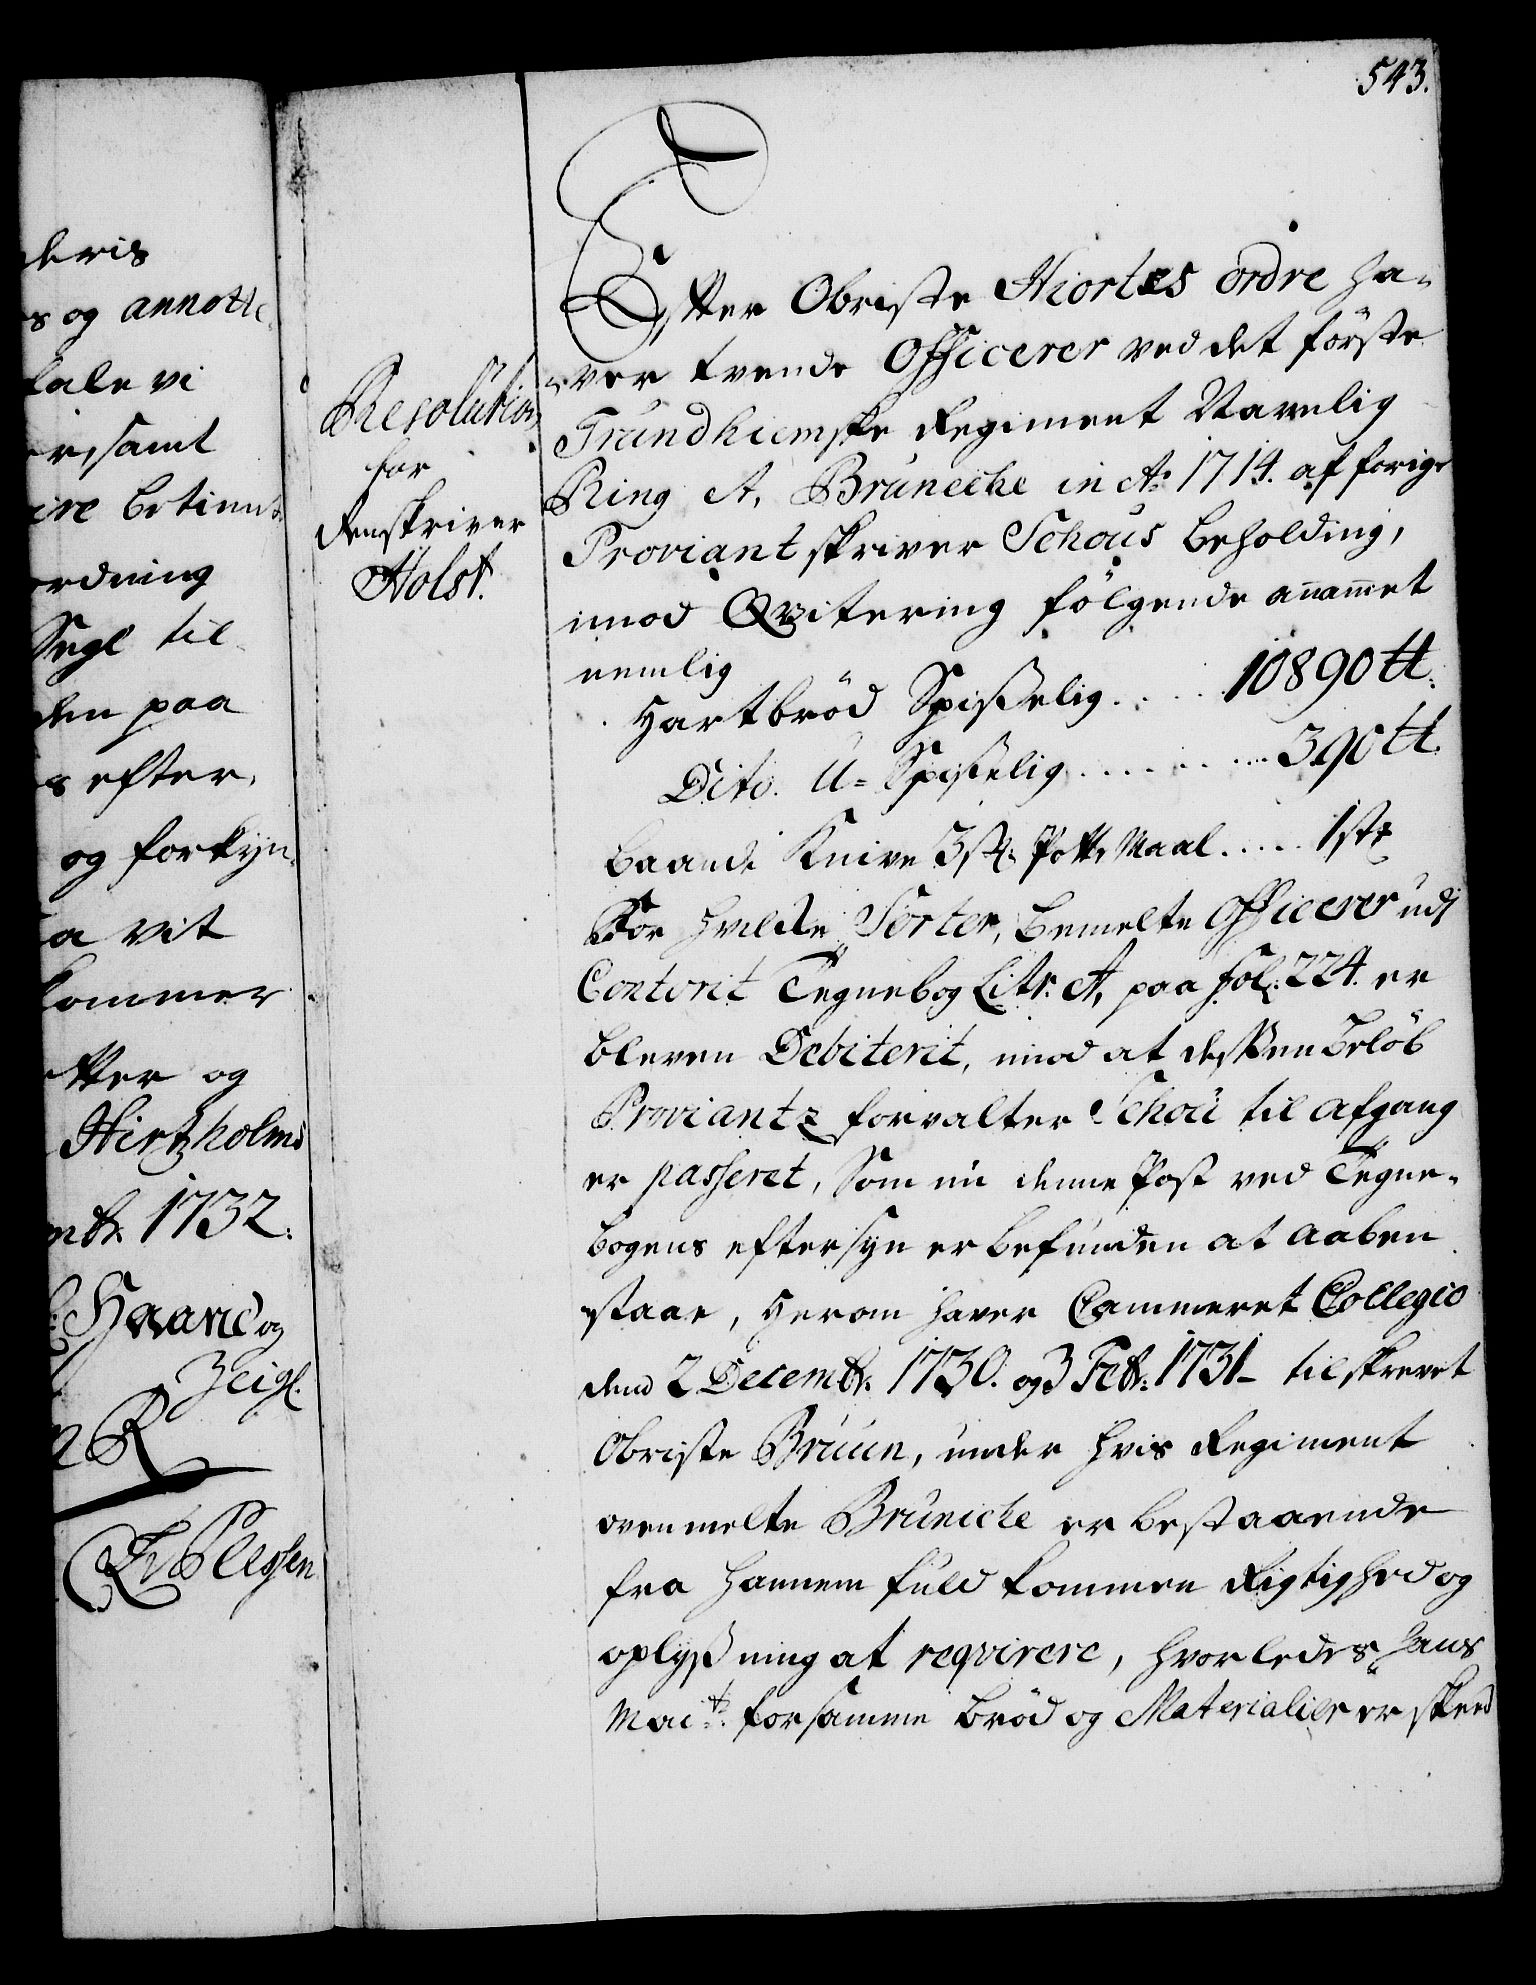 543.
deris
s og annotte
tale vi
er, samt
ire betient
ordning
Segl til
den paa
s efter,
og forkyn-
a vit
kommer
etter og
Hirtzholms
mbr. 1732.
Haand og
Zeigl.
R
Plessen
Resolution
for
Renskriver
Holst.
Efter Obriste Hiortes ordre ha-
ver tvende Officerer ved det förste
Trundhiemske Regiment Navnlig
Ring & Brüneche in Ao. 1714. af forige
Proviantskriver Schous beholding,
imod Qvitering fölgende anammet
nemlig
Hartbröd Spisselig..... 10890 tt.
Dito. U-Spisselig......... 390 tt.
baands Knive 3 st. Potte Maal..... 1 stk
For hvilke Sorter, bemelte Officerer udj
Contorit Tegnebog Litr. A, paa fol. 224. er
bleven Debiterit, imod at dessen Belöb
Proviantz forvalter Schou til afgang
er passeret, Som nu denne Post ved Tegne-
bogens eftersyn er befunden at aaben
staae, Herom haver Cammeret Collegio
dend 2 Decembr. 1730. og 3 Febr. 1731 tilskrevet
Obriste Bruun, under hvis Regiment
ovenmelte Brüniche er bestaaende
fra hannem fuldkommen Rigtighed og
oplysning at reqvirere, hvorledes hans
Mait. for samme bröd og Materialier er skeed